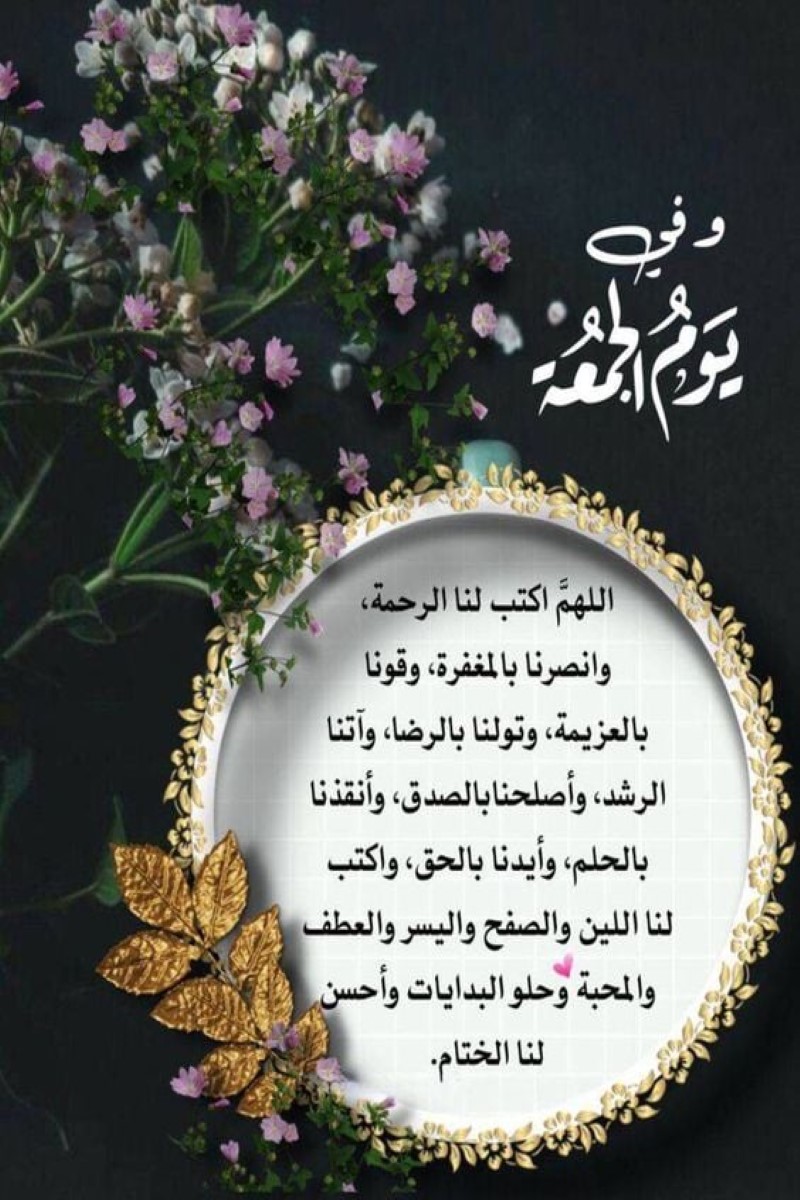 و في
يَومُ الجمعُة
اللهمَّ اكتب لنا الرحمة،
وانصرنا بالمغفرة، وقونا
بالعزيمة، وتولنا بالرضا، وآتنا
الرشد، وأصلحنابالصدق، وأنقذنا
بالحلم، وأيدنا بالحق، واكتب
لنا اللين والصفح واليسر والعطف
والمحبة وحلو البدايات وأحسن
لنا الختام.